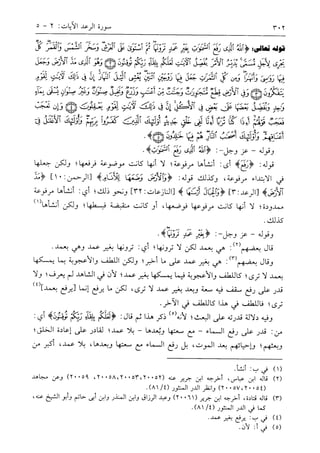 ٣٠٢ سورة الرعد الآيات: ٢ - ٥
قوله تعالى: ﴿اللَّهُ الَّذِي رَفَعَ السَّمَاوَاتِ بِغَيْرِ عَمَدٍ تَرَوْنَهَا ثُمَّ اسْتَوَى عَلَى الْعَرْشِ وَسَخَّرَ الشَّمْسَ وَالْقَمَرَ كُلٌّ
يَجْرِي لِأَجَلٍ مُسَمًّى يُدَبِّرُ الْأَمْرَ يُفَصِّلُ الْآيَاتِ لَعَلَّكُمْ بِلِقَاءِ رَبِّكُمْ تُوقِنُونَ وَهُوَ الَّذِي مَدَّ الْأَرْضَ وَجَعَلَ
فِيهَا رَوَاسِيَ وَأَنْهَارًا وَمِنْ كُلِّ الثَّمَرَاتِ جَعَلَ فِيهَا زَوْجَيْنِ اثْنَيْنِ يُغْشِي اللَّيْلَ النَّهَارَ إِنَّ فِي ذَلِكَ لَآيَاتٍ لِقَوْمٍ
يَتَفَكَّرُونَ وَفِي الْأَرْضِ قِطَعٌ مُتَجَاوِرَاتٌ وَجَنَّاتٌ مِنْ أَعْنَابٍ وَزَرْعٌ وَنَخِيلٌ صِنْوَانٌ وَغَيْرُ صِنْوَانٍ يُسْقَى بِمَاءٍ
وَاحِدٍ وَنُفَضِّلُ بَعْضَهَا عَلَى بَعْضٍ فِي الْأُكُلِ إِنَّ فِي ذَلِكَ لَآيَاتٍ لِقَوْمٍ يَعْقِلُونَ وَإِنْ تَعْجَبْ
فَعَجَبٌ قَوْلُهُمْ أَإِذَا كُنَّا تُرَابًا أَإِنَّا لَفِي خَلْقٍ جَدِيدٍ أُولَئِكَ الَّذِينَ كَفَرُوا بِرَبِّهِمْ وَأُولَئِكَ الْأَغْلَالُ فِي
أَعْنَاقِهِمْ وَأُولَئِكَ أَصْحَابُ النَّارِ هُمْ فِيهَا خَالِدُونَ﴾.
وقوله - عز وجل -: ﴿اللَّهُ الَّذِي رَفَعَ السَّمَاوَاتِ﴾.
قوله: ﴿رَفَعَ﴾ أي: أنشأها مرفوعة؛ لا أنها كانت موضوعة فرفعها؛ ولكن جعلها
في الابتداء مرفوعة، وكذلك قوله: ﴿وَالْأَرْضَ وَضَعَهَا لِلْأَنَامِ﴾ [الرحمن: ١٠] ﴿مَدَّ
الْأَرْضَ﴾ [الرعد: ٣] ﴿وَالْجِبَالَ أَرْسَاهَا﴾ [النازعات: ٣٢] ونحو ذلك؛ أي: أنشأها مرفوعة
ممدودة؛ لا أنها كانت مرفوعها فوضعها، أو كانت منقبضة فبسطها؛ ولكن أنشأها(١)
كذلك.
وقوله - عز وجل -: ﴿بِغَيْرِ عَمَدٍ تَرَوْنَهَا﴾.
قال بعضهم(٢): هي بعمد لكن لا ترونها؛ أي: ترونها بغير عمد وهي بعمد.
وقال بعضهم(٣): هي بغير عمد على ما أخبر؛ ولكن اللطف والأعجوبة بما يمسكها
بعمد لا ترى؛ كاللطف والأعجوبة فيما يمسكها بغير عمد؛ لأن في الشاهد لم يعرف؛ ولا
قدر على رفع سقف فيه سعة وبعد بغير عمد لا ترى، لكن ما يرفع إنما [يرفع بعمد](٤)
ترى؛ فاللطف في هذا كاللطف في الآخر.
وفيه دلالة قدرته على البعث؛ لأنه(٥) ذكر هذا ثم قال: ﴿لَعَلَّكُمْ بِلِقَاءِ رَبِّكُمْ تُوقِنُونَ﴾ أي:
من: قدر على رفع السماء - مع سعتها وبُعدها - بلا عمد؛ لقادر على إعادة الخلق؛
وبعثهم؛ وإحيائهم بعد الموت، بل رفع السماء مع سعتها وبعدها، بلا عمد، أكبر من
(١) في ب: أنشأ.
(٢) قاله ابن عباس، أخرجه ابن جرير عنه (٢٠٠٥٢، ٢٠٠٥٣، ٢٠٠٥٨، ٢٠٠٥٩) وعن مجاهد
(٢٠٠٥٤، ٢٠٠٥٧) وانظر الدر المنثور (٤/ ٨١).
(٣) قاله قتادة، أخرجه ابن جرير (٢٠٠٦١) وعبد الرزاق وابن المنذر وابن أبي حاتم وأبو الشيخ عنه،
كما في الدر المنثور (٤/ ٨١).
(٤) في ب: يرفع بغير عمد.
(٥) في أ: لأن.